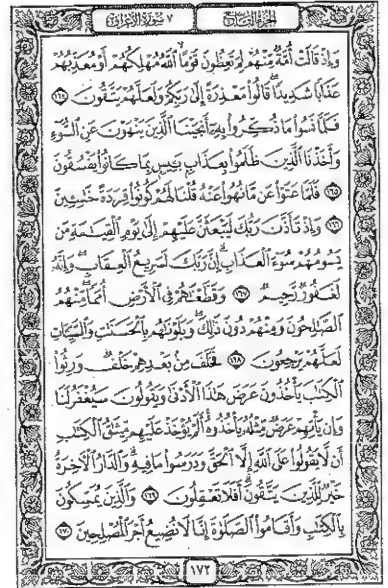 الجزء التاسع ٧ سورة الأعراف
وَإِذْ قَالَتْ أُمَّةٌ مِّنْهُمْ لِمَ تَعِظُونَ قَوْمًا ٱللَّهُ مُهْلِكُهُمْ أَوْ مُعَذِّبُهُمْ
عَذَابًا شَدِيدًا قَالُوا۟ مَعْذِرَةً إِلَىٰ رَبِّكُمْ وَلَعَلَّهُمْ يَتَّقُونَ ١٦٤
فَلَمَّا نَسُوا۟ مَا ذُكِّرُوا۟ بِهِۦٓ أَنجَيْنَا ٱلَّذِينَ يَنْهَوْنَ عَنِ ٱلسُّوٓءِ
وَأَخَذْنَا ٱلَّذِينَ ظَلَمُوا۟ بِعَذَابٍۭ بَـِٔيسٍۭ بِمَا كَانُوا۟ يَفْسُقُونَ
١٦٥ فَلَمَّا عَتَوْا۟ عَن مَّا نُهُوا۟ عَنْهُ قُلْنَا لَهُمْ كُونُوا۟ قِرَدَةً خَـٰسِـِٔينَ
١٦٦ وَإِذْ تَأَذَّنَ رَبُّكَ لَيَبْعَثَنَّ عَلَيْهِمْ إِلَىٰ يَوْمِ ٱلْقِيَـٰمَةِ مَن
يَسُومُهُمْ سُوٓءَ ٱلْعَذَابِ إِنَّ رَبَّكَ لَسَرِيعُ ٱلْعِقَابِ وَإِنَّهُۥ
لَغَفُورٌ رَّحِيمٌ ١٦٧ وَقَطَّعْنَـٰهُمْ فِى ٱلْأَرْضِ أُمَمًا مِّنْهُمُ
ٱلصَّـٰلِحُونَ وَمِنْهُمْ دُونَ ذَٰلِكَ وَبَلَوْنَـٰهُم بِٱلْحَسَنَـٰتِ وَٱلسَّيِّـَٔاتِ
لَعَلَّهُمْ يَرْجِعُونَ ١٦٨ فَخَلَفَ مِنۢ بَعْدِهِمْ خَلْفٌ وَرِثُوا۟
ٱلْكِتَـٰبَ يَأْخُذُونَ عَرَضَ هَـٰذَا ٱلْأَدْنَىٰ وَيَقُولُونَ سَيُغْفَرُ لَنَا
وَإِن يَأْتِهِمْ عَرَضٌ مِّثْلُهُۥ يَأْخُذُوهُ أَلَمْ يُؤْخَذْ عَلَيْهِم مِّيثَـٰقُ ٱلْكِتَـٰبِ
أَن لَّا يَقُولُوا۟ عَلَى ٱللَّهِ إِلَّا ٱلْحَقَّ وَدَرَسُوا۟ مَا فِيهِ وَٱلدَّارُ ٱلْـَٔاخِرَةُ
خَيْرٌ لِّلَّذِينَ يَتَّقُونَ أَفَلَا تَعْقِلُونَ ١٦٩ وَٱلَّذِينَ يُمَسِّكُونَ
بِٱلْكِتَـٰبِ وَأَقَامُوا۟ ٱلصَّلَوٰةَ إِنَّا لَا نُضِيعُ أَجْرَ ٱلْمُصْلِحِينَ ١٧٠
١٧٢